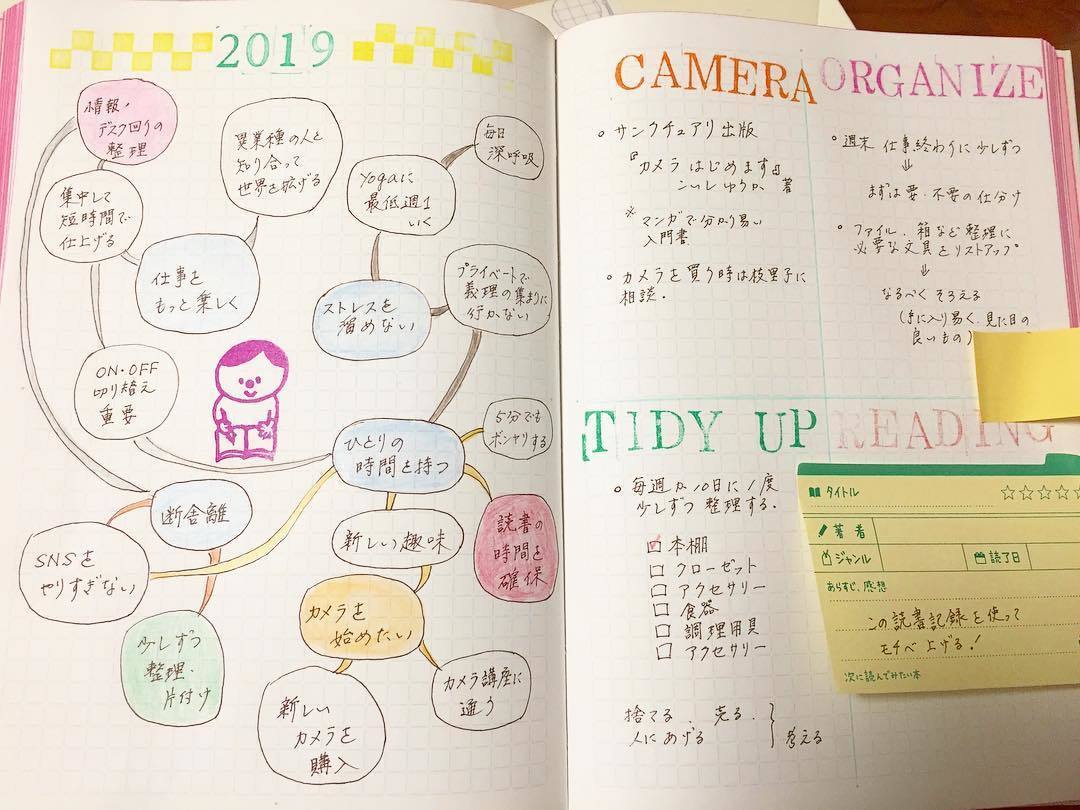 2019
情報・
デスク回りの
整理
集中して
短時間で
仕上げる
異業種の人と
知り合って
世界を拡げる
仕事を
もっと楽しく
ON・OFF
切り替え
重要
毎日
深呼吸
yogaに
最低週1
いく
ストレスを
溜めない
プライベートで
義理の集まりに
行かない
ひとりの
時間を持つ
5分でも
ボンヤリする
読書の
時間を
確保
新しい趣味
断捨離
SNSを
やりすぎない
少しずつ
整理・
片付け
カメラを
始めたい
新しい
カメラを
購入
カメラ講座に
通う
CAMERA
サンクチュアリ出版
『カメラはじめます』
こいしゆうか 著
※マンガで分かり易い
入門書
カメラを買う時は枝里子に
相談.
ORGANIZE
週末 仕事終わりに少しずつ
↓
まずは要・不要の仕分け
ファイル、箱など整理に
必要な文具をリストアップ
↓
なるべくそろえる
(手に入り易く、見た目の
良いもの)
TIDY UP
毎週か10日に1度
少しずつ整理する.
本棚
クローゼット
アクセサリー
食器
調理用具
アクセサリー
捨てる、売る、
人にあげる
考える
READING
タイトル
☆☆☆☆☆
著者
ジャンル
読了日
あらすじ、感想
この読書記録を使って
モチベ上げる!
次に読んでみたい本